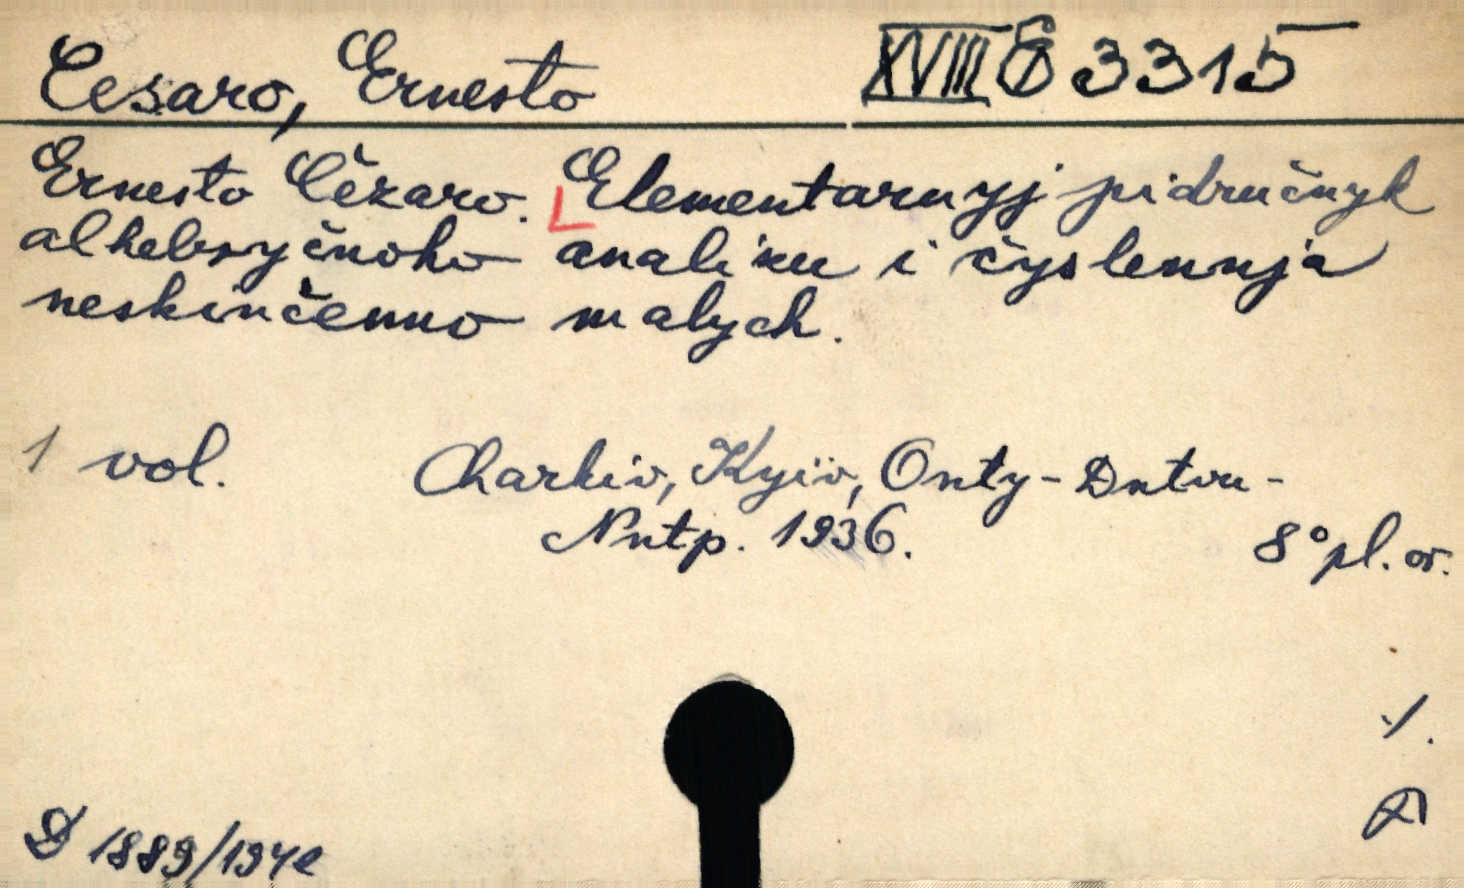 Cesaro, Ernesto
XVIII E 3315
Ernesto Čezaro. Elementarnyj pidručnyk
alhebryčnoho analizu i čyslennja
neskinčenno malych.
1 vol.
Charkiv, Kyïv, Onty-Dntvu-
Nntp. 1936.
8° pl. or.
1.
D 1889/1942